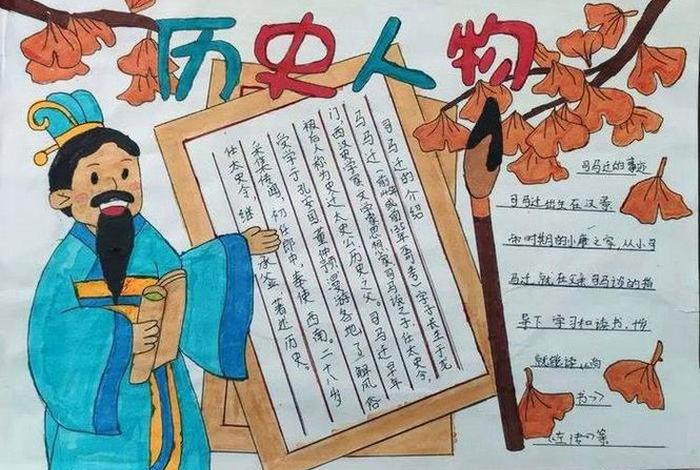 历史人物
司马迁的介绍
司马迁（前145年或前135年 ）字子长生于龙
门，西汉史学家文学家思想家司马谈之子，任太史令，
被后人称为史迁太史公历史之父。司马迁早年
受学于孔安国董仲舒漫游各地，了解风俗
采集传闻，初任郎中，奉使西南。二十八岁
任太史令，继承 ，著述历史。
司马迁的事迹
司马迁出生在汉景
帝时期的小康之家，从小司
马迁就在父亲司马谈的指
导下学习和读书，
就能读
书》
《左 》 等